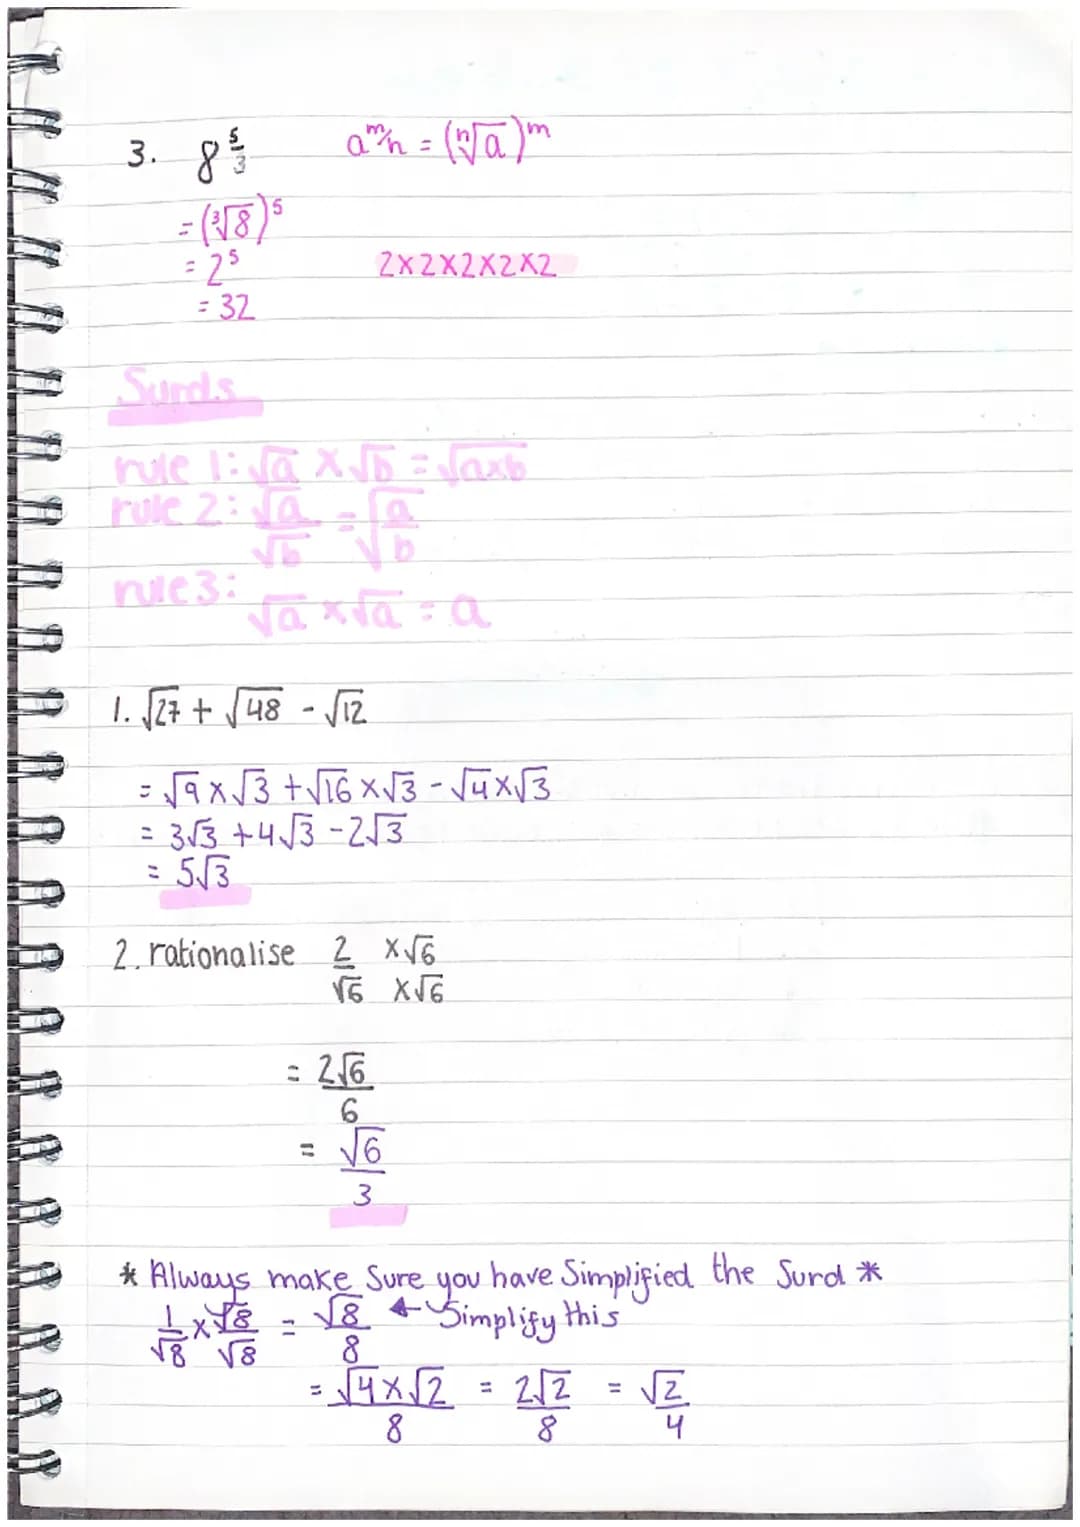 3. 8^(5/3)    a^(m/n) = (ⁿ√a)^m
= (³√8)^5
= 2^5    2×2×2×2×2
= 32
Surds
rule 1: √a × √b = √a×b
rule 2: √a/√b = √(a/b)
rule 3: √a × √a = a
1. √27 + √48 - √12
= √9 × √3 + √16 × √3 - √4 × √3
= 3√3 + 4√3 - 2√3
= 5√3
2. rationalise 2/√6 ×√6/×√6
= 2√6/6
= √6/3
* Always make Sure you have Simplified the Surd *
1/√8 × √8/√8 = √8/8 ← Simplify this
= √4×√2/8 = 2√2/8 = √2/4